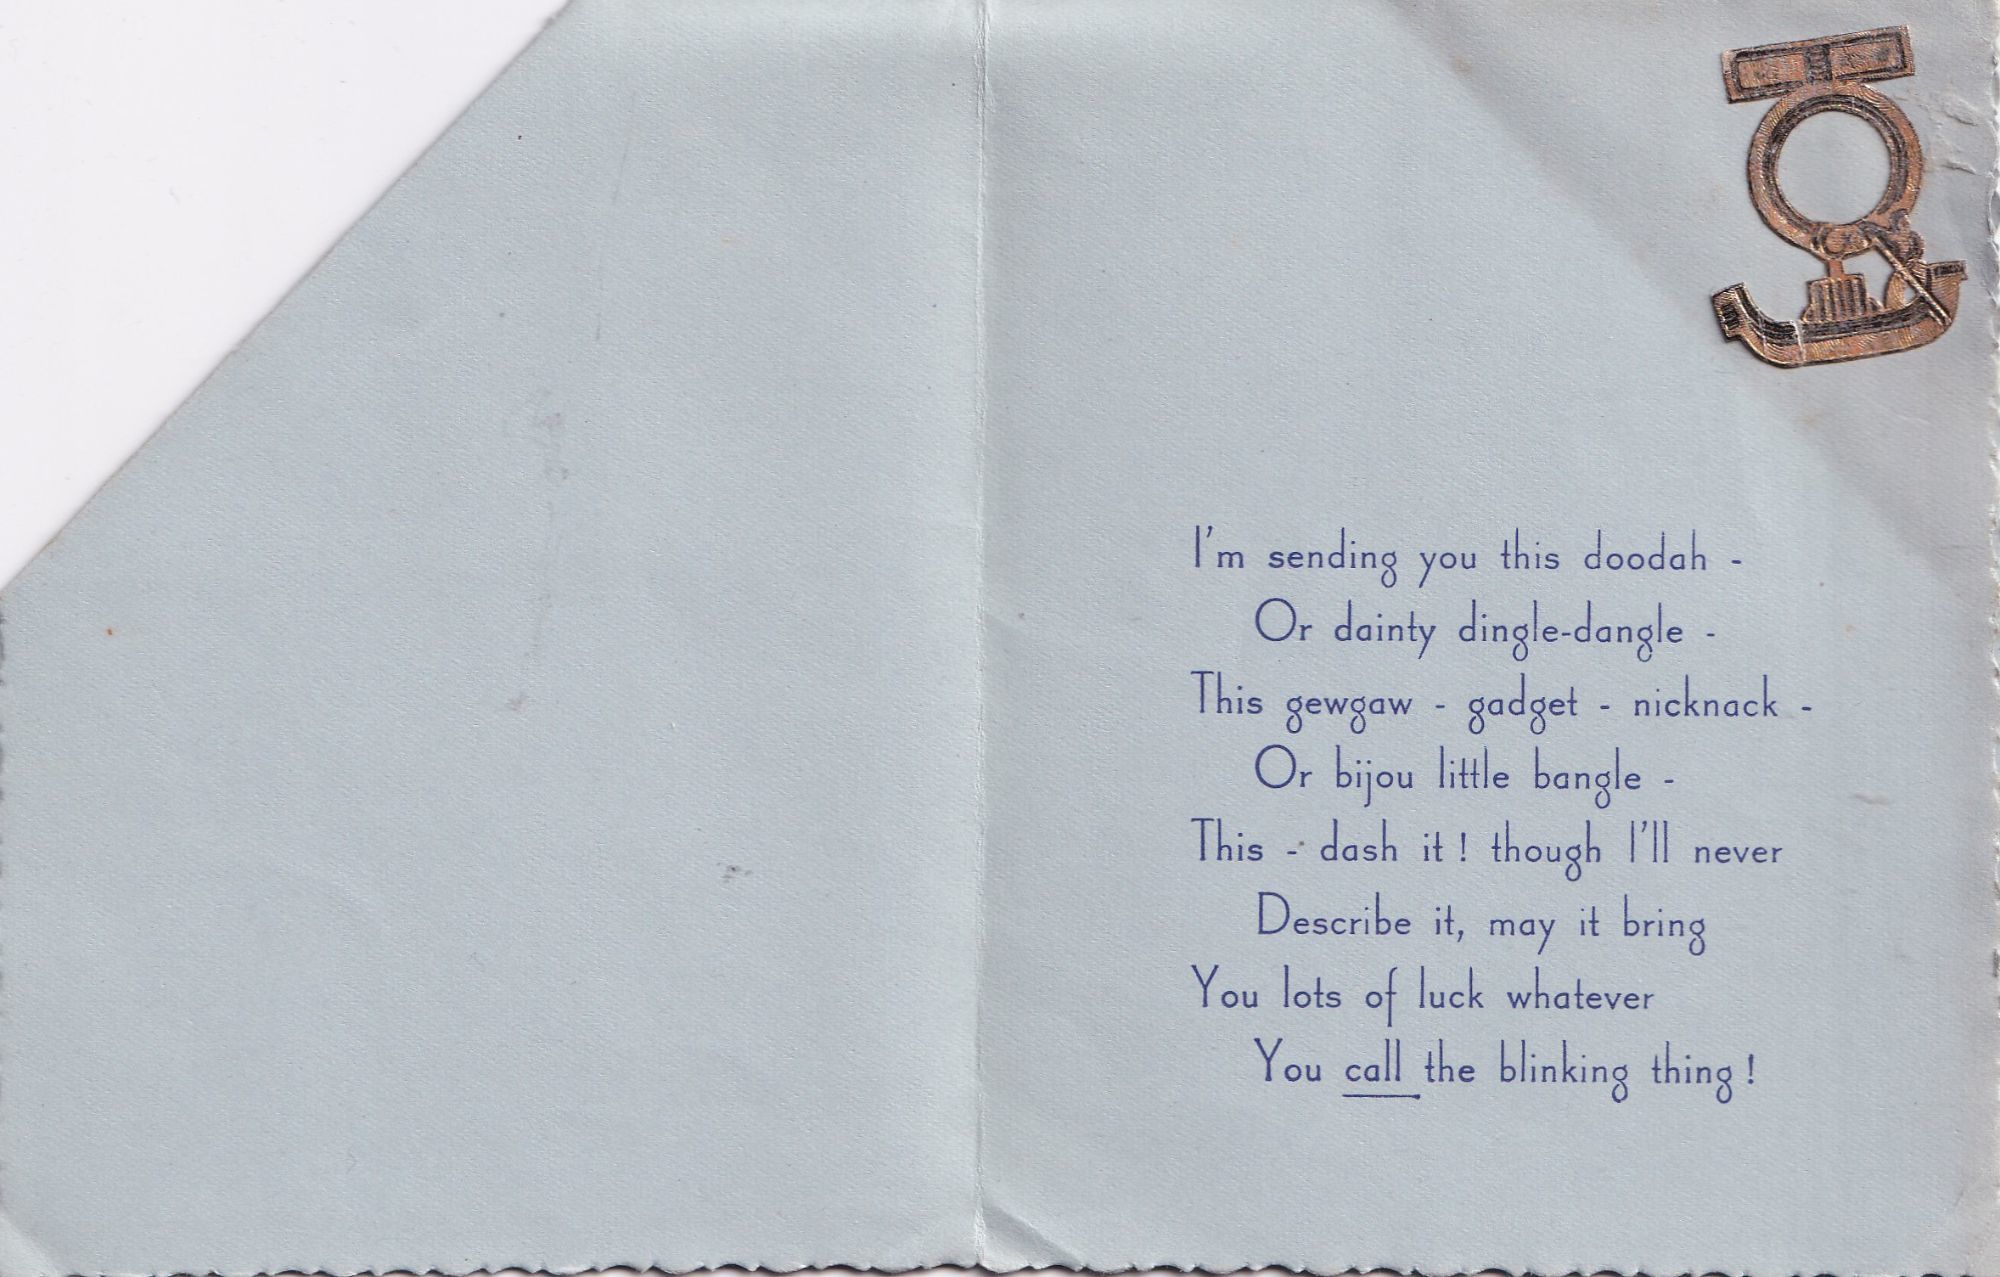 I'm sending you this doodah -
Or dainty dingle-dangle -
This gewgaw - gadget - nicknack -
Or bijou little bangle -
This - dash it! though I'll never
Describe it, may it bring
You lots of luck whatever
You call the blinking thing!